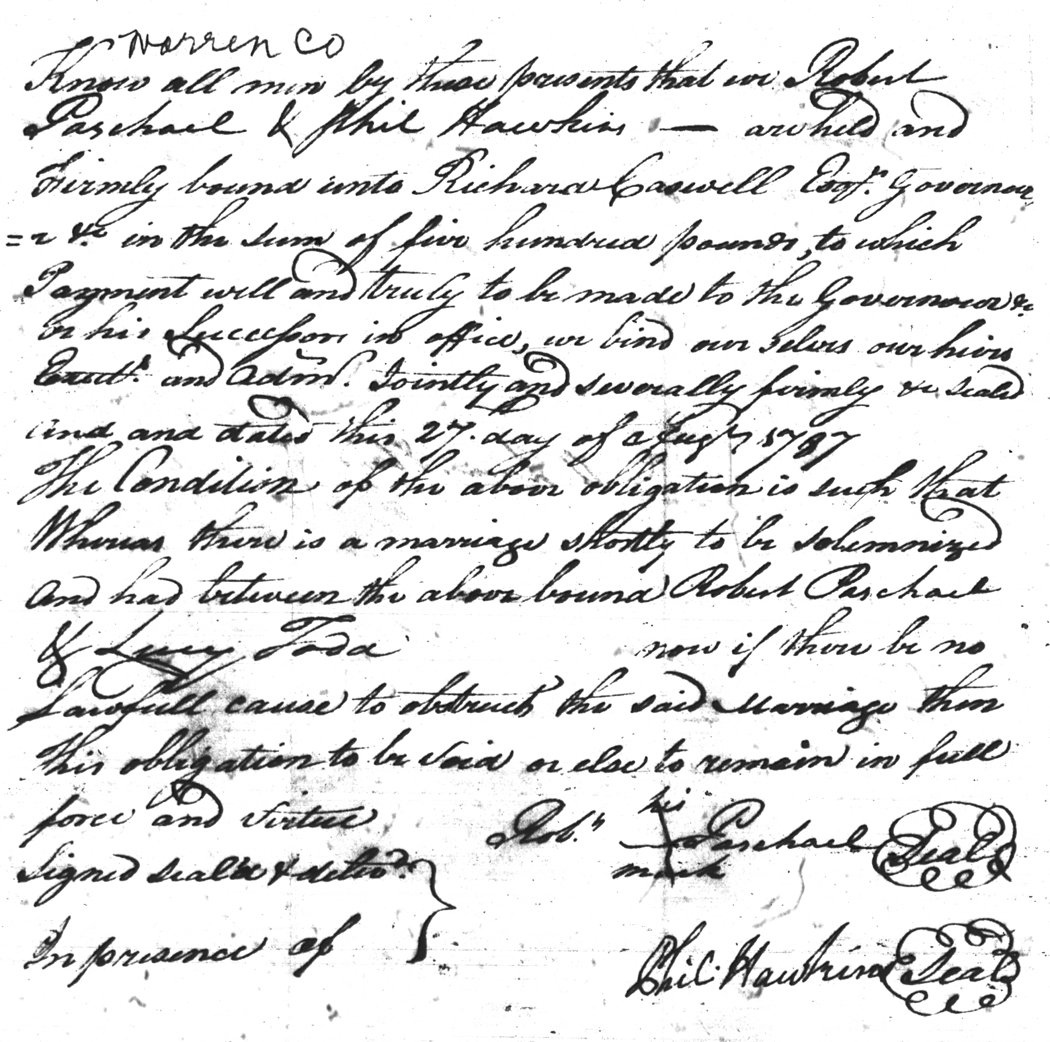 Warren Co
Know all men by these presents that we Robert
Paschael & Phil Hawkins — are held and
Firmly bound unto Richard Caswell Esqr. Governou
=r &c in the sum of five hundred pounds, to which
Payment well and truly to be made to the Governour &c
or his Successors in office, we bind our selves our heirs
Exects. and Admrs. Jointly and severally firmly &c seald
and and dated this 27. day of Augt 1787
The Condition of the above obligation is such that
Whereas there is a marriage shortly to be solemnized
and had between the above bound Robert Paschael
& Lucy Todd now if there be no
Lawfull cause to obstruct the said marriage then
this obligation to be void or else to remain in full
force and virtue
Robt his mark Paschael Seal
Signed seal'd & delivd.
In presence of
Phil. Hawkins Seal